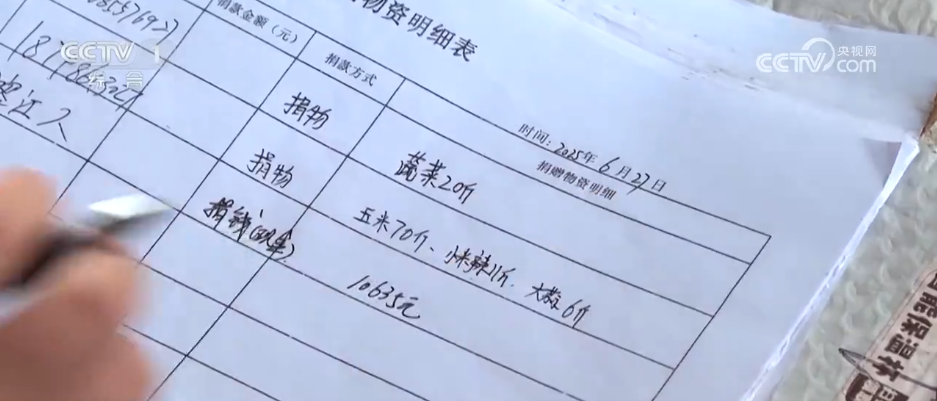 CCTV 1
综合
央视网
CCTV.com
物资明细表
时间：2025年6月27日
捐款金额（元） 捐款方式 捐赠物资明细
捐物 蔬菜20斤
捐物 玉米70斤、小米辣11斤、大葱6斤
捐钱（现金） 10635元
能保温杯